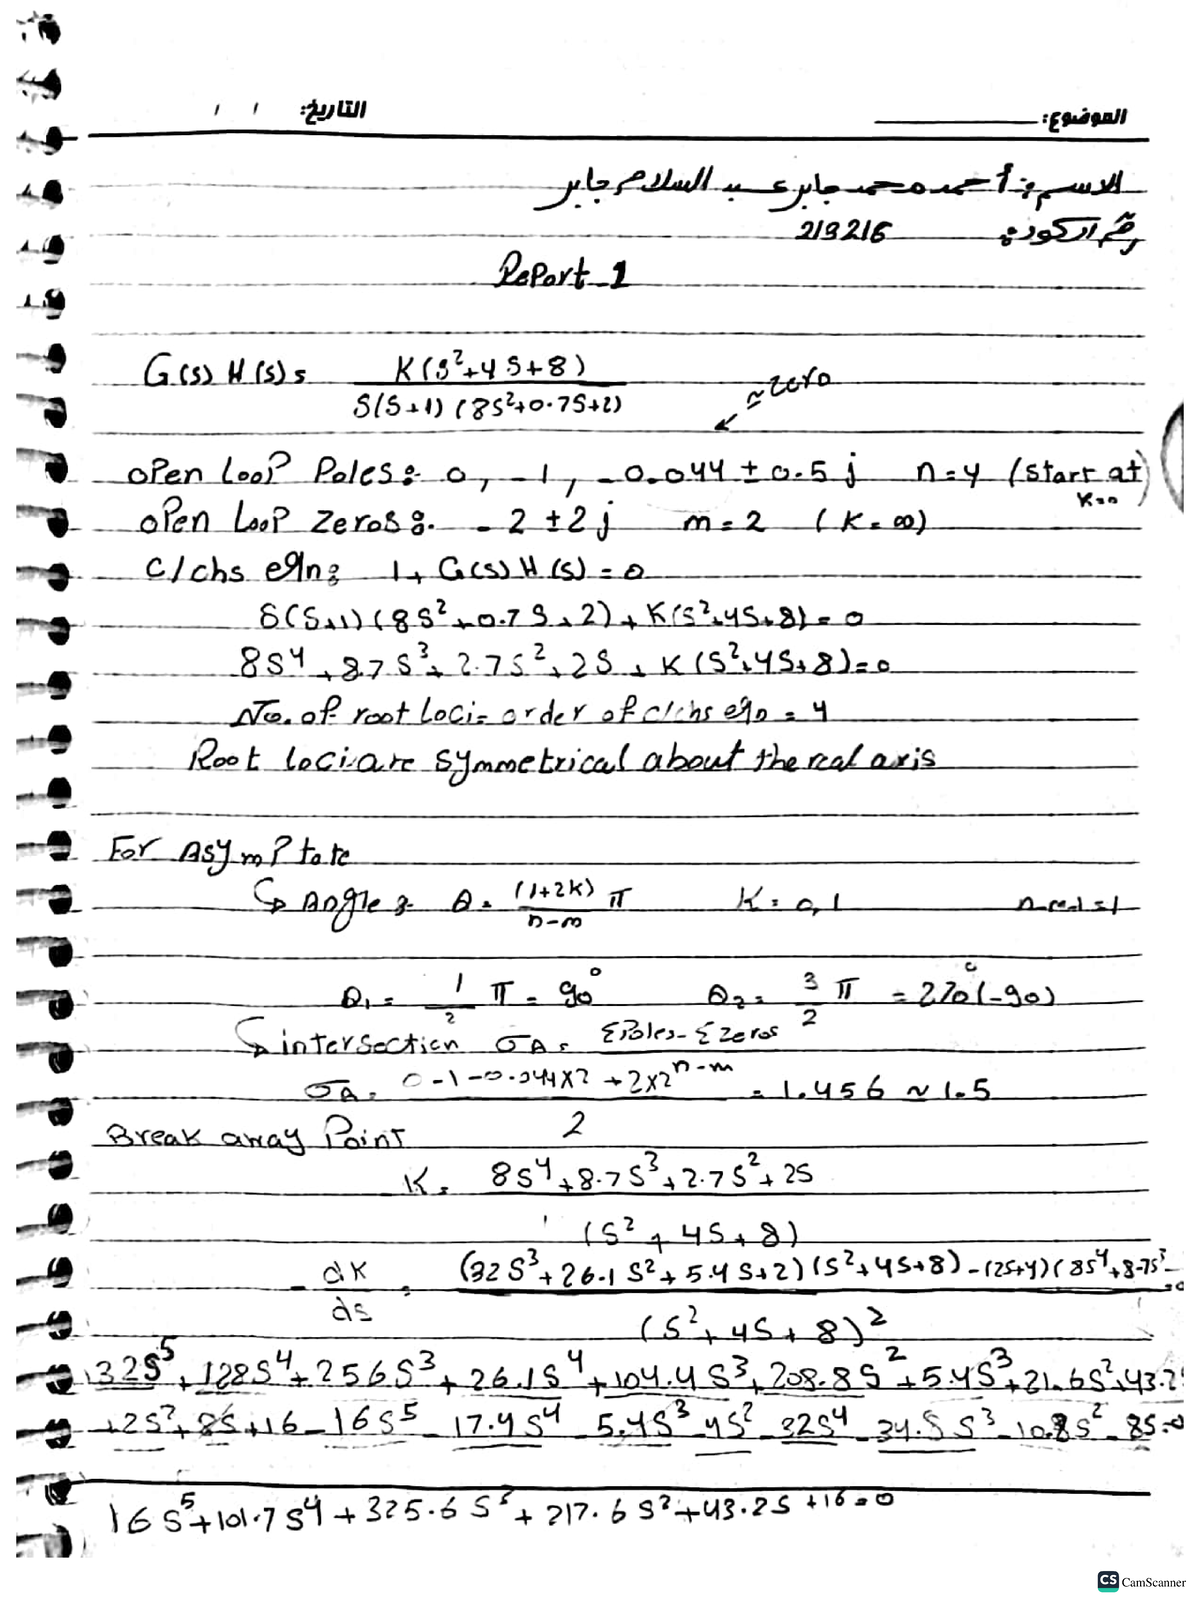 الموضوع: التاريخ: / /
الاسم: أحمد محمد جابر عبد السلام جابر
رقم الكود: 219216
RePort_1
G(s) H(s) = K(S²+4S+8)
S(S+1) (8S²+0.7S+2)
≈ zero
oPen LooP Poles: 0, -1, -0.044 ± 0.5j n=4 (start at K=0)
oPen LooP Zeros: -2 ± 2j m=2 (K=∞)
c/chs eqn: 1+G(s)H(s)=0
S(S+1)(8S²+0.7S+2)+K(S²+4S+8)=0
8S⁴+8.7S³+2.7S²+2S+K(S²+4S+8)=0
No. of root Loci = order of c/chs eqn = 4
Root loci are symmetrical about the real axis
For AsymPtote
↳ Angle: θ = (1+2K)/(n-m) π K=0,1 n-m-1=1
θ₁ = 1/2 π = 90° θ₂ = 3/2 π = 270°(-90)
↳ intersection σA = ΣPoles-ΣZeros
n-m
σA = 0-1-0.044×2+2×2 = 1.456 ≈ 1.5
2
Break away Point
K = 8S⁴+8.7S³+2.7S²+2S
(S²+4S+8)
-dK/ds = (32S³+26.1S²+5.4S+2)(S²+4S+8)-(2S+4)(8S⁴+8.7S³
(S²+4S+8)²
=0
32S⁵+128S⁴+256S³+26.1S⁴+104.4S³+208.8S²+5.4S³+21.6S²+43.2S
+2S²+8S+16-16S⁵-17.4S⁴-5.4S³-4S²-32S⁴-34.8S³-10.8S²-8S=0
16S⁵+101.7S⁴+325.6S³+217.6S²+43.2S+16=0
CS CamScanner